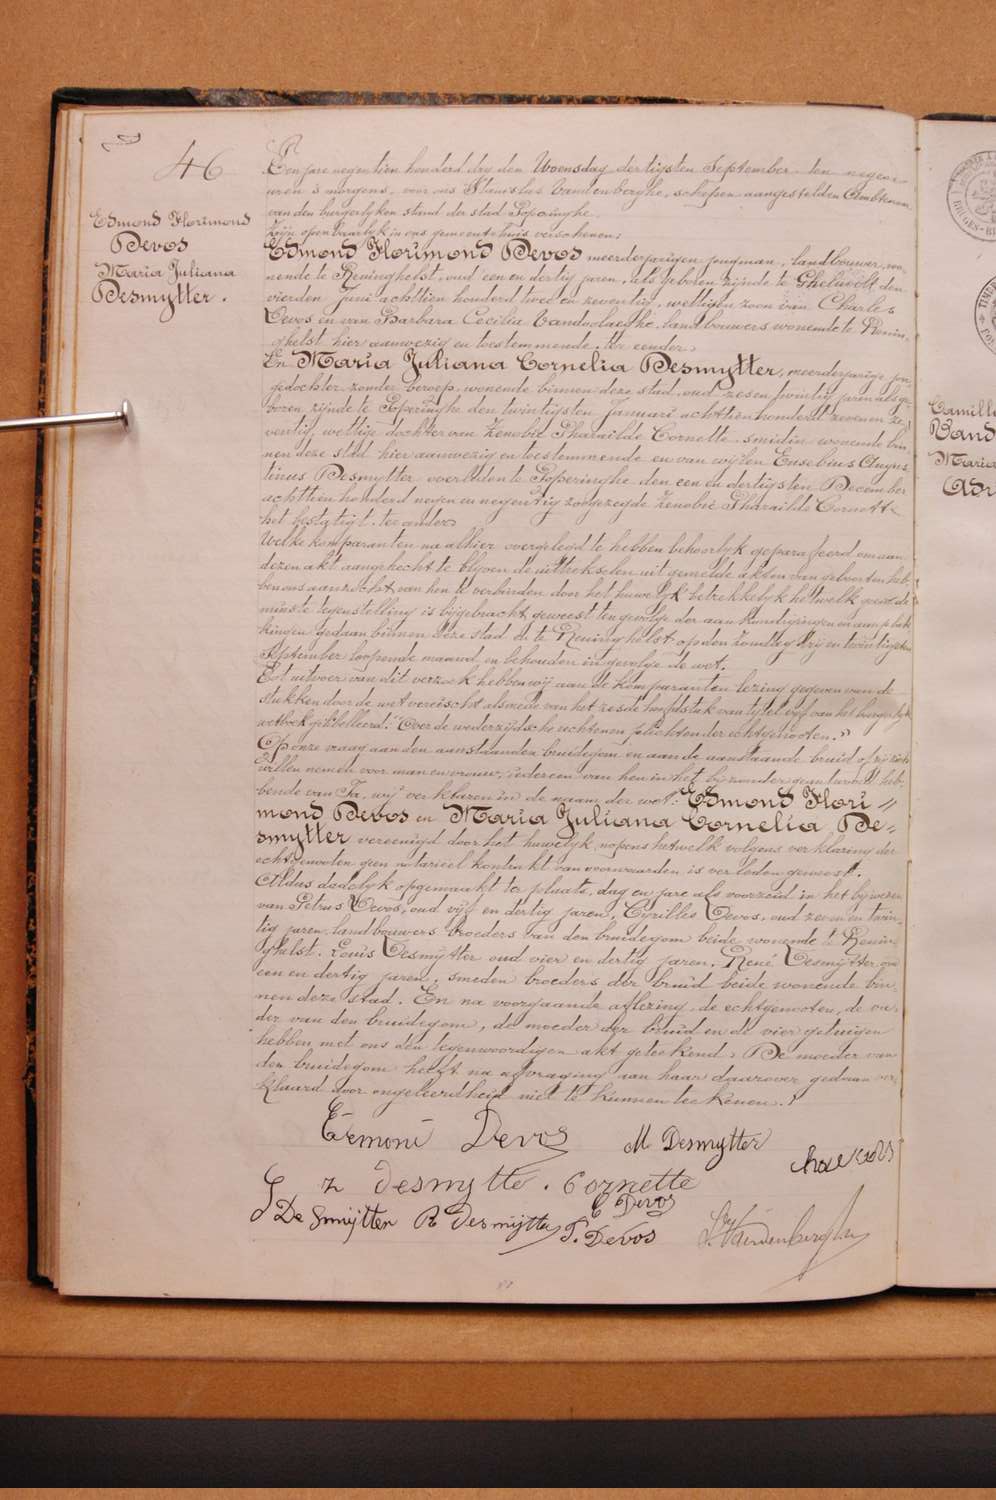 46
Edmond Florimond
Devos
Maria Juliana
Desmytter.
Een jare negentien honderd dry den Woensdag dertigsten September ten negen
uren 's morgens, voor ons Stanislas Vandenberghe, schepen aangestelden Ambtenaar
van den burgerlyken stand der stad Poperinghe
Zijn openbaarlyk in ons gemeentehuis verschenen:
Edmond Florimond Devos meerderjarigen jongman, landbouwer, wo-
nende te Reninghelst, oud een en dertig jaren, als geboren zijnde te Gheluvelt den
vierden Juni achttien honderd twee en zeventig, wettigen zoon van Charles
Devos en van Barbara Cecilia Vandoolaeghe, landbouwers wonende te Renin-
ghelst hier aanwezig en toestemmende. Ter eender
En Maria Juliana Cornelia Desmytter, meerderjarige jon-
gedochter zonder beroep, wonende binnen deze stad, oud zes en twintig jaren als ge-
boren zijnde te Poperinghe den twintigsten Januari achttien honderd zeven en ze-
ventig, wettige dochter van Zenobie Pharaïlde Cornette smidin wonende bin-
nen deze stad hier aanwezig en toestemmende en van wijlen Eusebius Augus-
tinus Desmytter overleden te Poperinghe den een en dertigsten December
achttien honderd negen en negentig zoogezegde Zenobie Pharaïlde Cornette
het bestatigt. ter ander
Welke komparanten na alhier overgelegd te hebben behoorlyk geparafeerd om aan
dezen akt aangehecht te blyven de uittrekselen uit gemelde akten van geboorten heb-
ben ons aanzocht van hen te verbinden door het huwelyk betrekkelyk hetwelk geen de
minste tegenstelling is bygebracht geweest ten gevolge der aankundigingen en aanplak-
kingen gedaan binnen deze stad en te Reninghelst op den Zondag dry en twintigsten
September loopende maand en behouden in gevolge de wet.
Tot uitvoer van dit verzoek hebben wij aan de komparanten lezing gegeven van de
stukken door de wet vereischt alsmede van het zesde hoofdstuk van tytel vyf van het burgerlyk
wetboek getitelleerd: "Over de wederzijdsche rechten en plichten der echtgenooten."
Op onze vraag aan den aanstaanden bruidegom en aan de aanstaande bruid of zij zich
willen nemen voor man en vrouw, iedereen van hen in het byzonder geantwoord heb-
bende van Ja, wij verklaren in de naam der wet: Edmond Flori =
mond Devos en Maria Juliana Cornelia De=
smytter vereenigd door het huwelyk, nopens hetwelk volgens verklaring der
echtgenooten geen notarieel kontrakt van voorwaarden is verleden geweest.
Aldus dadelyk opgemaakt ter plaats, dag en jare als voorzeid in het bywezen
van Petrus Devos, oud vijf en dertig jaren, Cyrilles Devos, oud zeven en twin-
tig jaren, landbouwers broeders van den bruidegom beide wonende te Renin-
ghelst. Louis Desmytter oud vier en dertig jaren, René Desmytter, oud
een en dertig jaren, smeden broeders der bruid beide wonende bin-
nen deze stad. En na voorgaande aflezing, de echtgenooten, de va-
der van den bruidegom, de moeder der bruid en de vier getuigen
hebben met ons den tegenwoordigen akt geteekend. De moeder van
den bruidegom heeft na afvraging aan haar daarover gedaan ver-
klaard door ongeleerdheid niet te kunnen teekenen.
Edmond Devos M Desmytter
z desmytte. Cornette
C Devos
De Smijtter R Desmijtter P. Devos
St. Vandenberghe
Camille
Vand
Maria
Adr